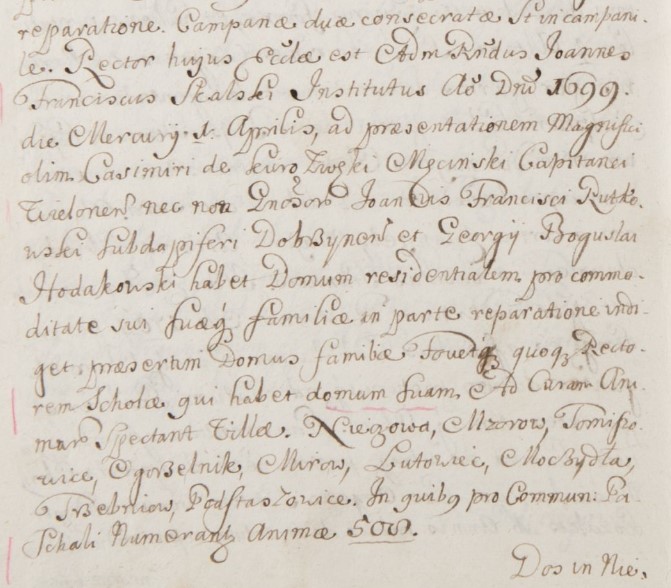 reparatione. Campanæ duæ consecratæ st in campani-
le. Rector hujus Eccłæ est Adm Rńdus Joannes
Franciscus Skalski Institutus Aõ Dnĩ 1699.
die Mercurÿ 1. Aprilis, ad præsentationem Magnifici
olim Casimiri de Kurozwęki Męcinski Capitanei
Vielunen: nec non Gnõsorũ Joannis Francisci Rutko-
wski Subdapiferi Dobrzynen et Georgÿ Boguslai
Hodakowski habet Domum residentialem pro commo-
ditate sui suæq3 familiæ in parte reparatione indi-
get præsertim Domus familiæ Fovetq3 quoq3 Recto-
rem Scholæ qui habet domum suam. Ad Curam Ani-
marũ spectant Villæ. Niegowa, Mzorow, Tomiszo-
wice, Ogorzelnik, Mirow, Lutowiec, Moczydła,
Trzebniow, Postaszowice. In quibq pro Commun: Pa-
schali Numerant Animæ 508.
Dos in Nie,